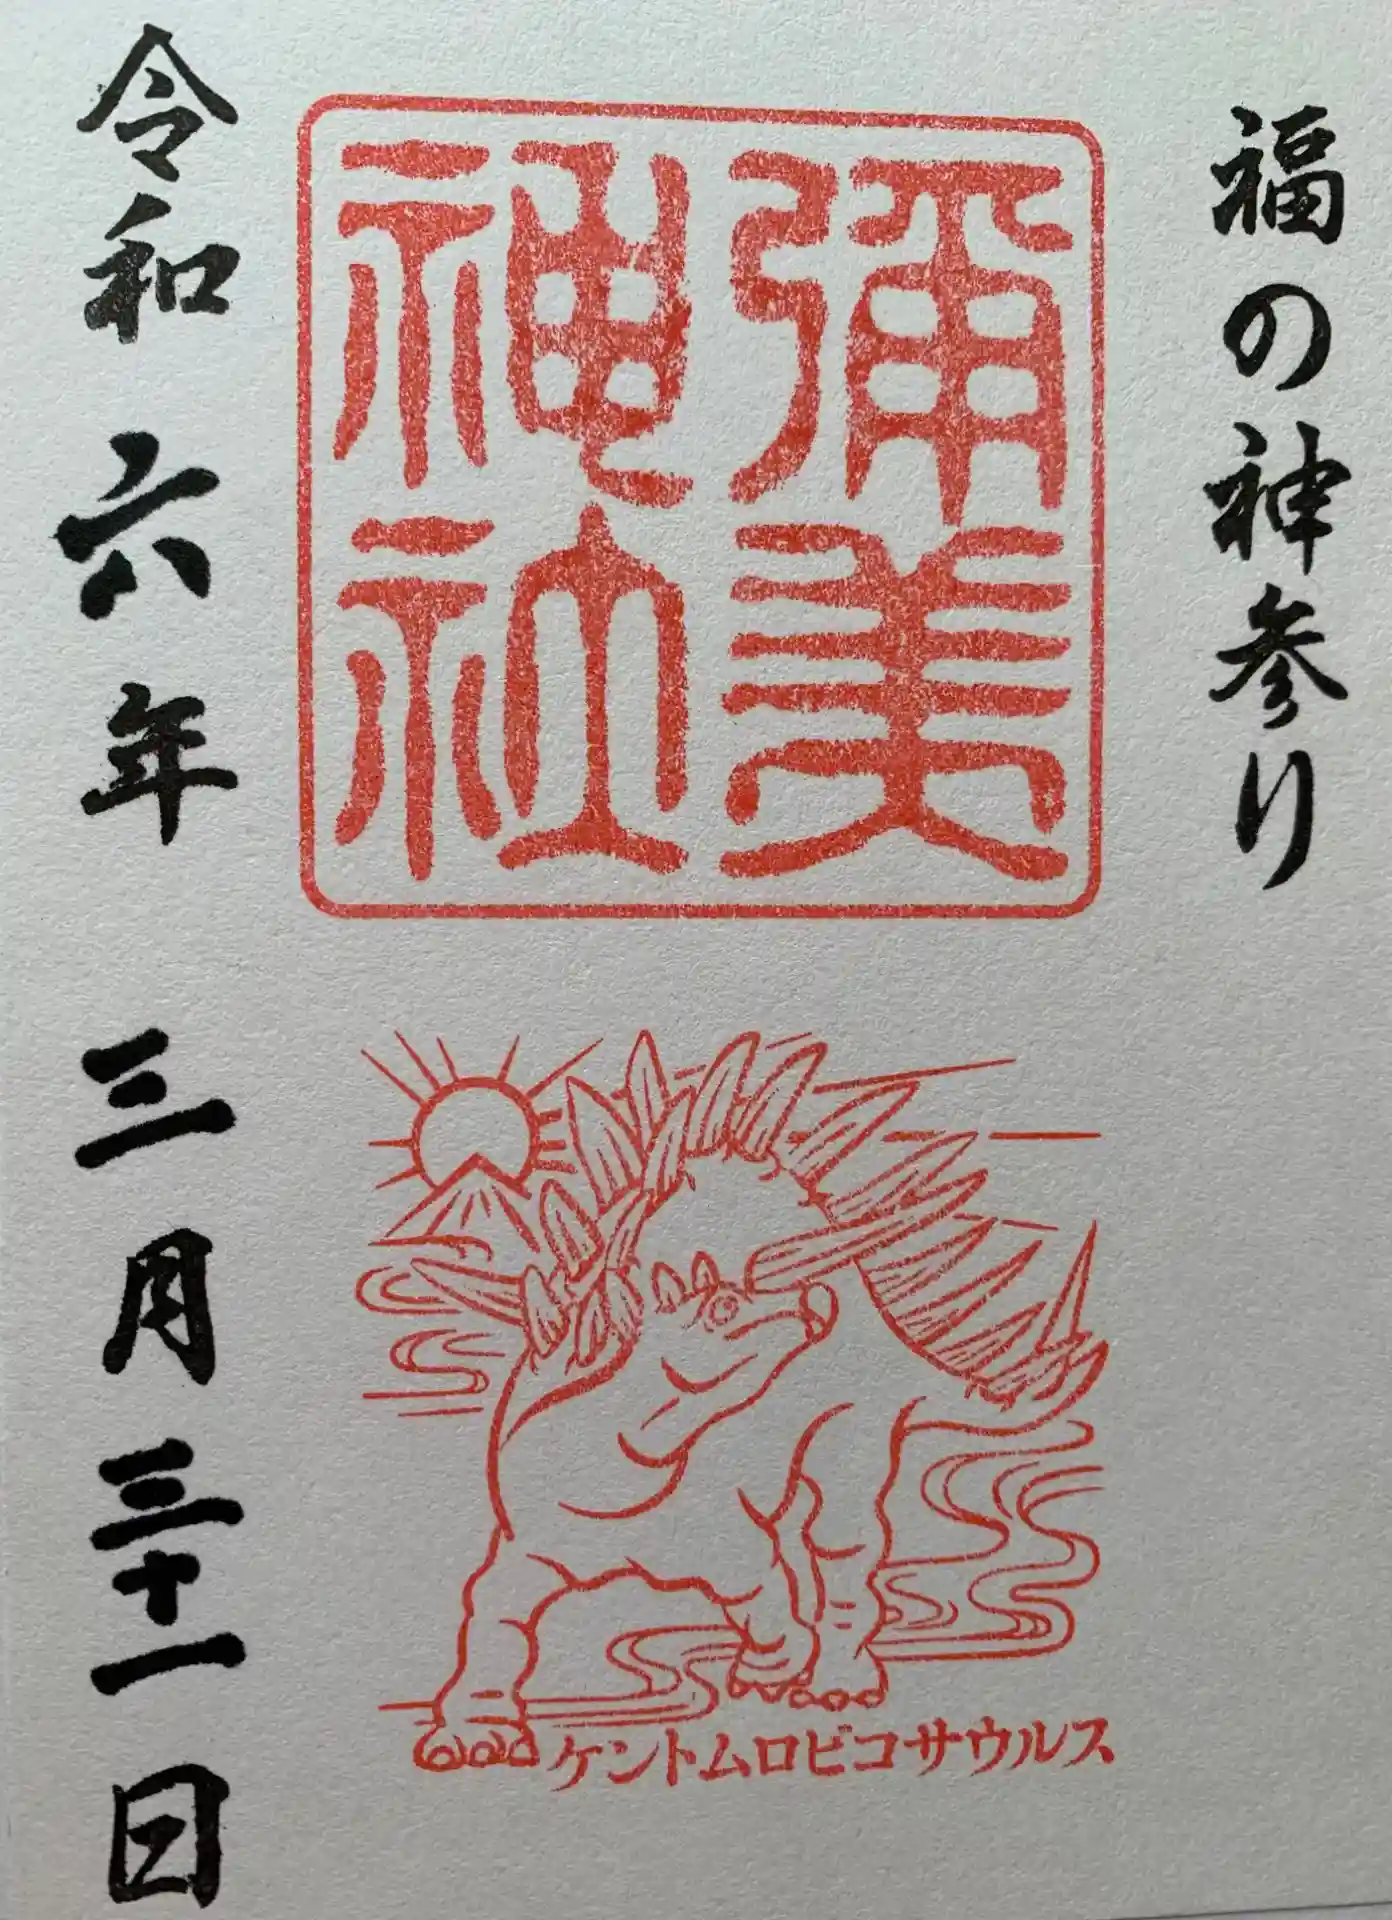 福の神参り
彌美
神社
ケントムロビコサウルス
令和六年 三月三十一日